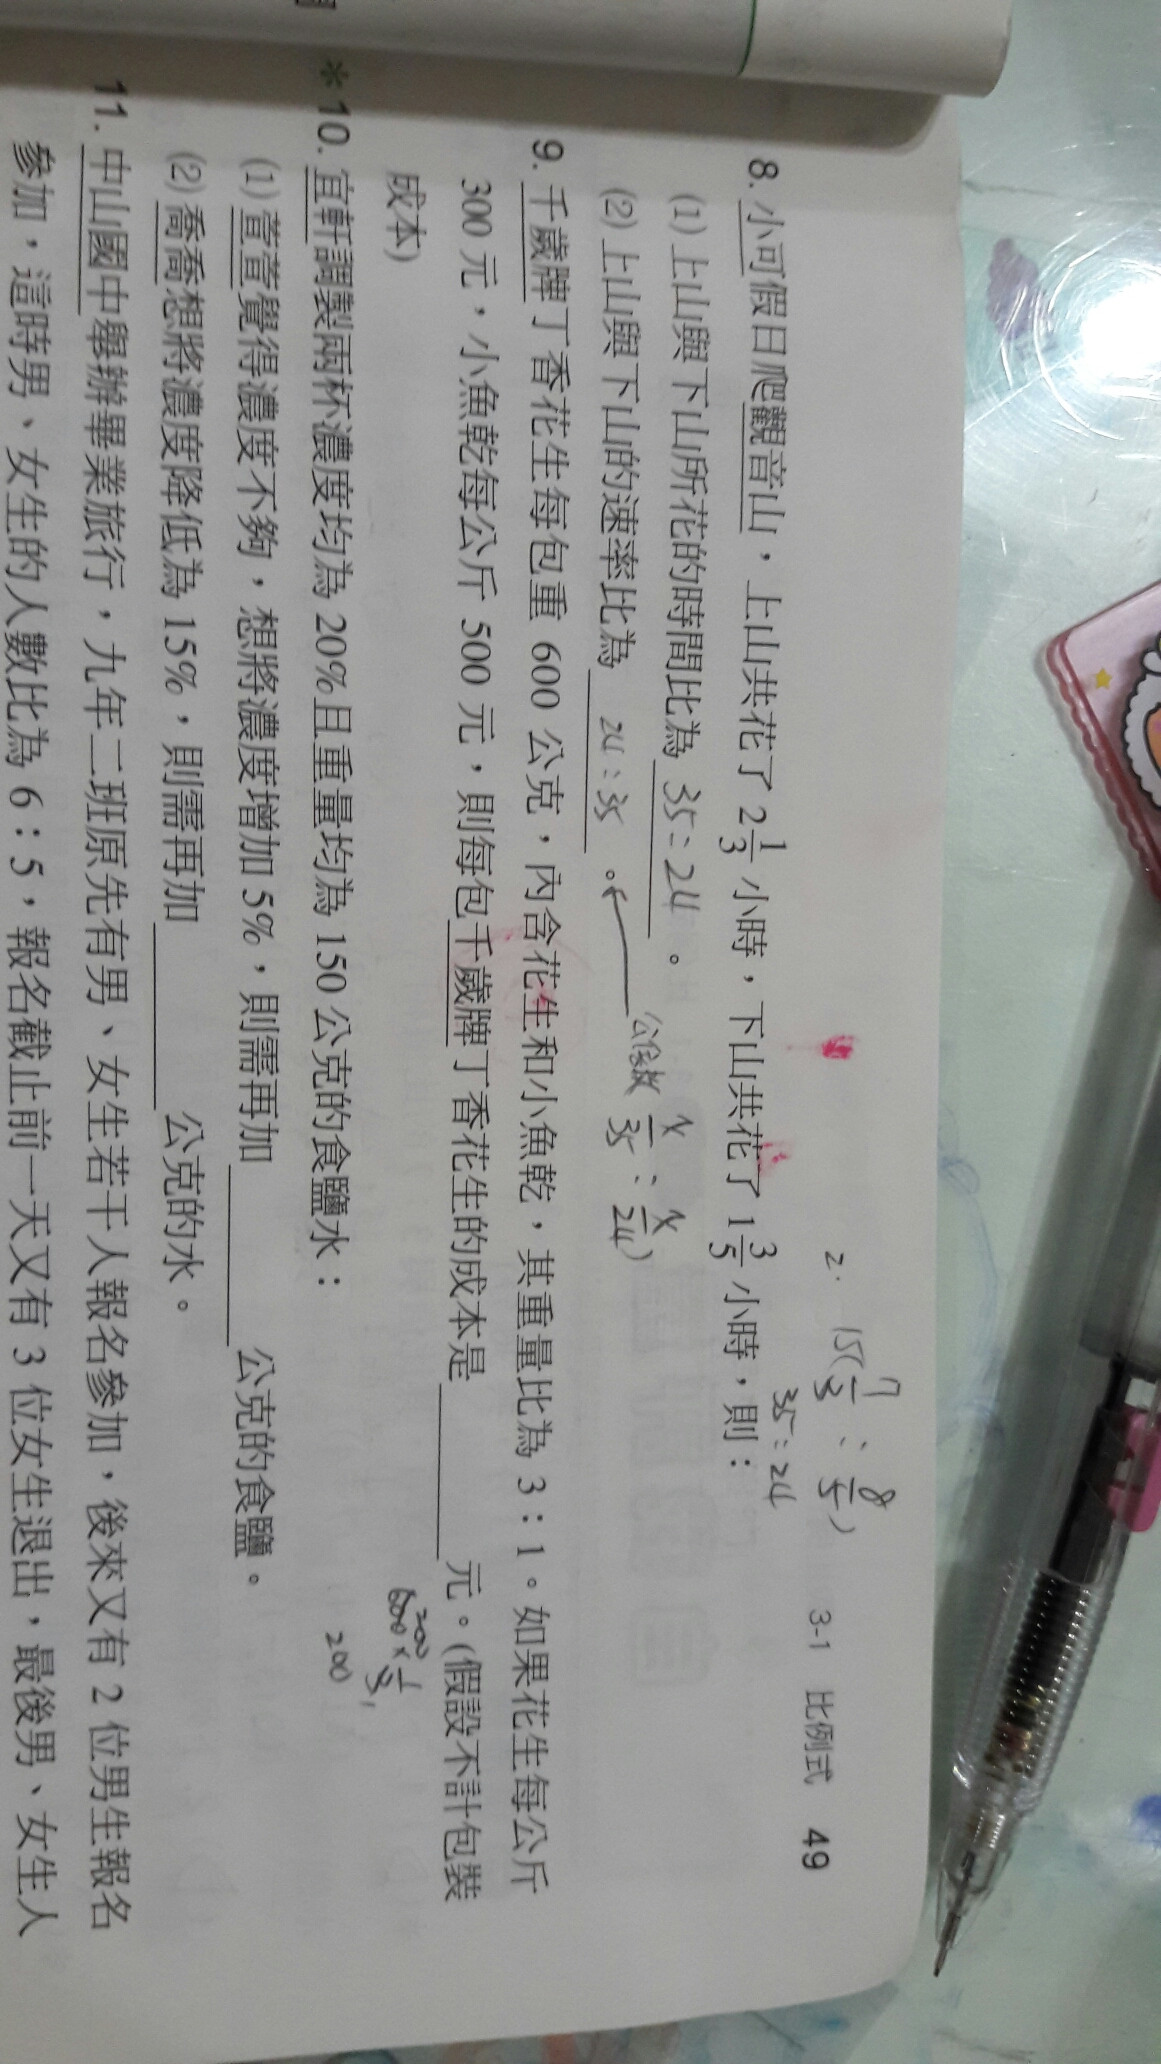 3-1 比例式 49
2. 15(7/3 : 8/5)
35:24
8. 小可假日爬觀音山，上山共花了 2 1/3 小時，下山共花了 1 3/5 小時，則：
(1) 上山與下山所花的時間比為 35:24 。
(2) 上山與下山的速率比為 24:35 。
x/35 : x/24)
9. 千歲牌丁香花生每包重 600 公克，內含花生和小魚乾，其重量比為 3：1。如果花生每公斤
300 元，小魚乾每公斤 500 元，則每包千歲牌丁香花生的成本是 元。(假設不計包裝
成本)
200
600 × 1/3
200
*10. 宜軒調製兩杯濃度均為 20%且重量均為 150 公克的食鹽水：
(1) 萱萱覺得濃度不夠，想將濃度增加 5%，則需再加 公克的食鹽。
(2) 喬喬想將濃度降低為 15%，則需再加 公克的水。
11. 中山國中舉辦畢業旅行，九年二班原先有男、女生若干人報名參加，後來又有 2 位男生報名
參加，這時男、女生的人數比為 6：5，報名截止前一天又有 3 位女生退出，最後男、女生人